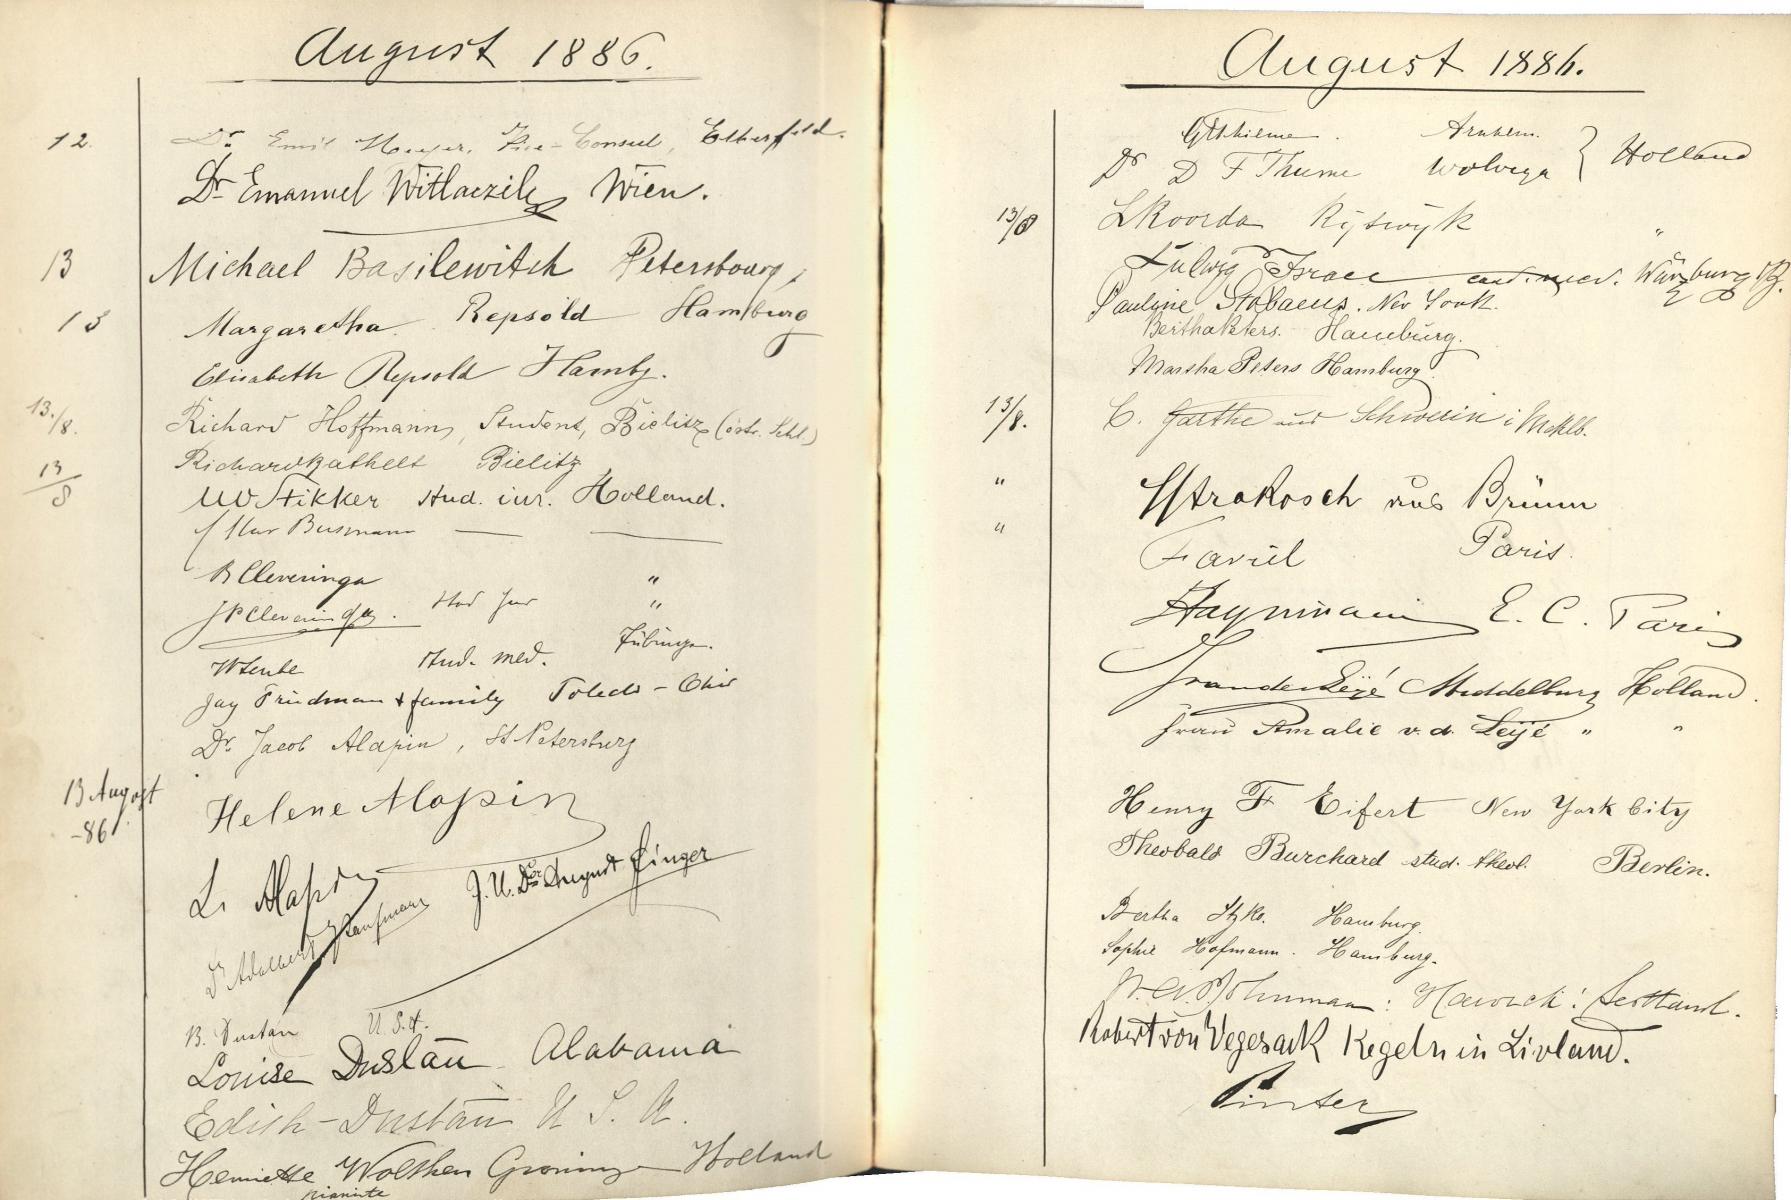 August 1886.
12. Dr Emil Meyer, Vice-Consul, Elberfeld.
Dr Emanuel Witlaczil, Wien.
13 Michael Basilewitch Petersbourg,
13 Margaretha Repsold Hamburg
Elisabeth Repsold Hambg.
13./8. Richard Hoffmann, Student, Bielitz (östr. Schl.)
Richard Kathelt Bielitz
13/8 Stikker stud. iur. Holland.
Busmann
R Cleveringa "
J P Cleveringa. stud jur "
stud. med. Tübingen.
Jay Friedman & family Toledo - Ohio
Dr. Jacob Alapin, St Petersburg
13 August -86 Helene Alapin
L. Alapin
J. U. Dr August Singer
Dr Adalbert Kaufmann
B. Dustan U.S.A.
Louise Dustan Alabama
Edith Dustan U. S. A.
Henriette Wolthers Groningen Holland
pianiste
August 1886.
Arnhem. } Holland
Dr D F Thieme Wolvega
13/8 L Roorda Ryswyk "
Ludwig Israel cand. med. Würzburg
Pauline Stobaeus. New York.
Bertha Peters. Hamburg.
Martha Peters Hamburg
13/8. C. Garthe aus Schwerin i Meklb.
" Strakosch aus Brünn
" Paris.
E. C. Paris
Middelburg Holland.
Frau Amalie v. d. Leijé " "
Henry F Eifert New York City
Theobald Burchard stud. theol. Berlin.
Bertha Hamburg.
Sophie Hofmann. Hamburg.
Hawick: Scotland.
Robert von Vegesack Kegeln in Livland.